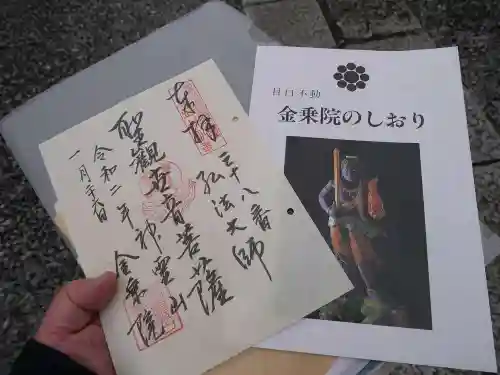 奉拝
三十八番
弘法大師
聖觀世音菩薩
神霊山
金乗院
令和二年
一月二六日
目白不動
金乗院のしおり